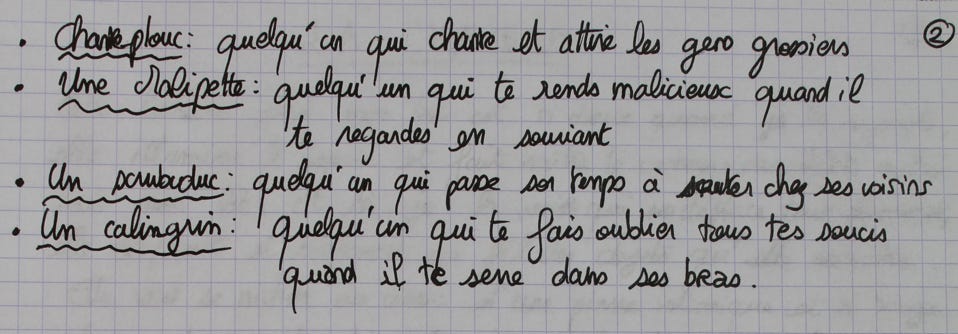 • Chanteplouc : quelqu'un qui chante et attire les gens grossiers ②
• Une Malipette : quelqu'un qui te rends malicieux quand il
te regardes en souriant
• Un soubuduc : quelqu'un qui passe son temps à sauter chez ses voisins
• Un calingrin : quelqu'un qui te fais oublier tous tes soucis
quand il te serre dans ses bras.